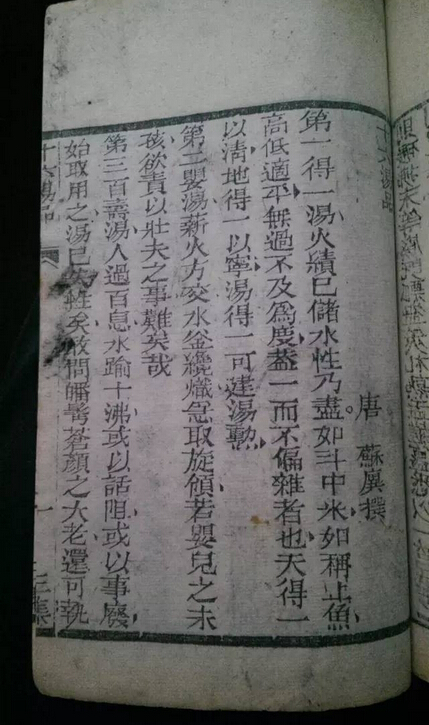 十六湯品
唐 蘇廙撰
第一得一湯火績已儲水性乃盡如斗中米如稱上魚
高低適平無過不及爲度蓋一而不偏雜者也天得一
以淸地得一以寧湯得一可建湯勲
第二嬰湯薪火方交水釜纔熾急取旋傾若嬰兒之未
孩欲責以壯夫之事難矣哉
第三百壽湯人過百息水踰十沸或以話阻或以事廢
始取用之湯已失性矣敢問皤鬢蒼顔之大老還可執
十六湯品
一